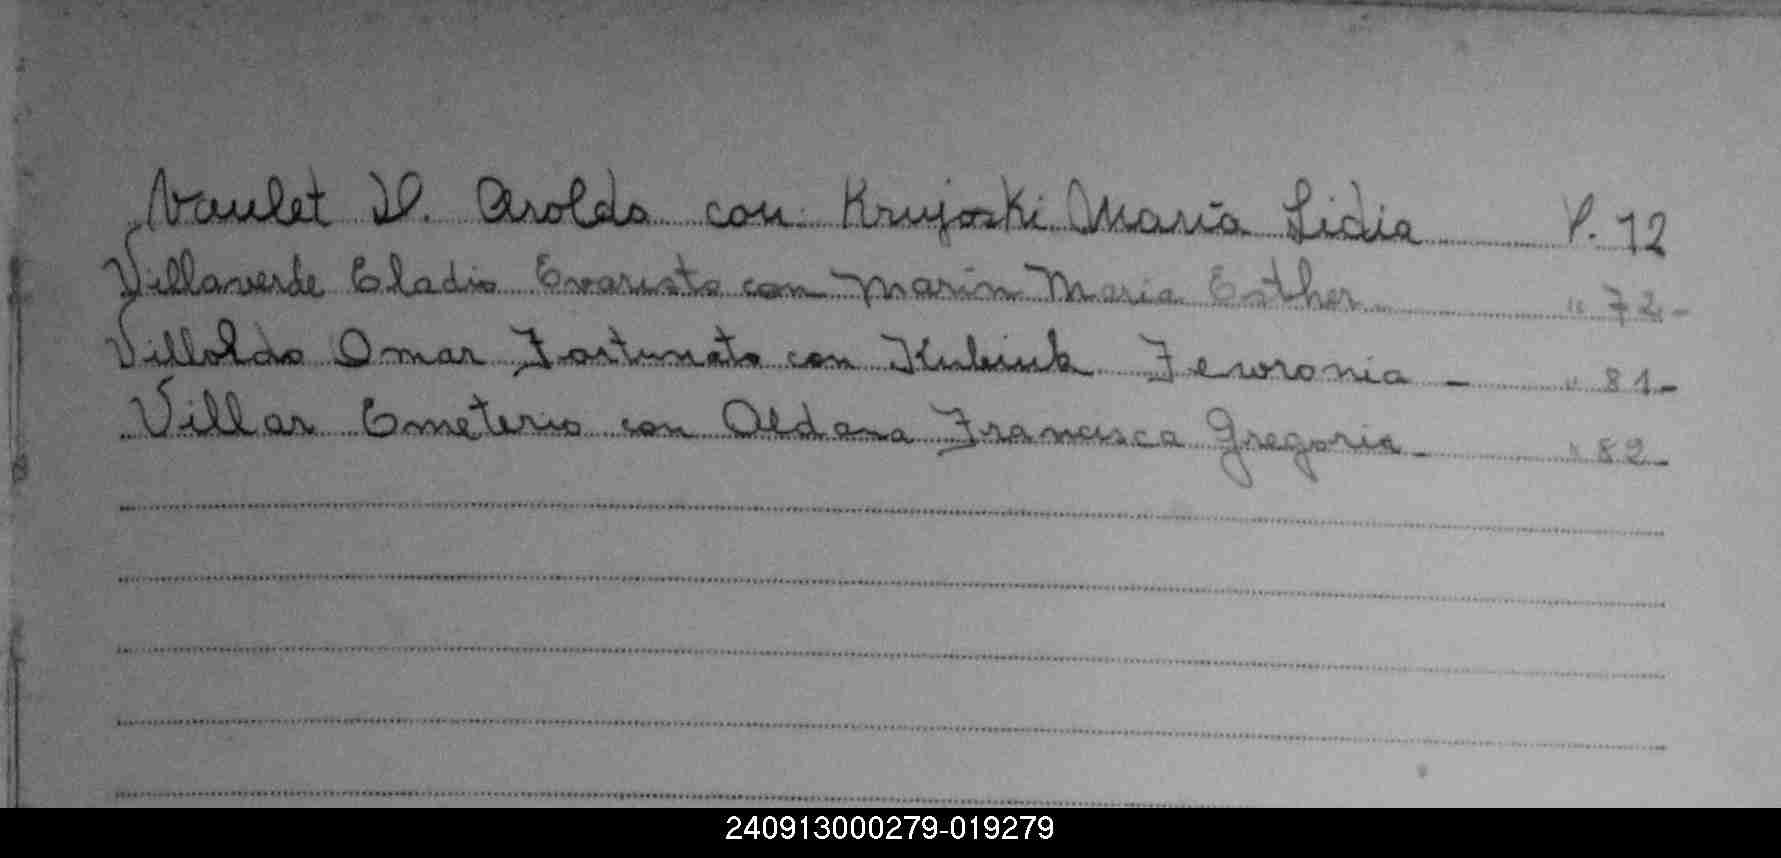 Vaulet D. Aroldo con Krujoski María Lidia P. 12
Villaverde Eladio Evaristo con Marin Maria Esther " 72-
Villoldo Omar Fortunato con Kubiuk Fewronia - " 81-
Villar Emeterio con Aldana Francisca Gregoria - " 82-
240913000279-019279